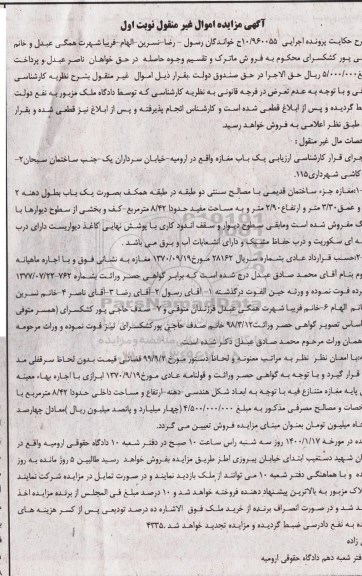 آگهی مزایده اموال غیر منقول نوبت اول
رح حکایت پرونده اجرایی ۱۰/۹۶۰۰۵۵ج خواندگان رسول - رضا-نسرین-الهام-فریبا شهرت همگی عبدل و خانم
پور کشکسرای محکوم به فروش ماترک و تقسیم وجوه حاصله در حق خواهان ناصر عبدل و پرداخت
۵/۰۰۰/۰۰۰ ریال حق الاجرا در حق صندوق دولت .بقرار ذیل اموال غیر منقول بشرح نظریه کارشناسی
و با توجه به عدم تعرض در فرجه قانونی به نظریه کارشناسی که توسط دادگاه ملک مزبور به نفع دولت
ط گردیده و پس از ابلاغ قطعی شده است و کارشناس انجام پذیرفته و پس از ابلاغ نیز قطعی شده و بقرار
طبق نظر اعلامی به فروش خواهد رسید.
خصات مال غیر منقول :
جرای قرار کارشناسی ارزیابی یک باب مغازه واقع در ارومیه-خیابان سرداران یک-جنب ساختمان سبحان۲-
کاشی شهرداری۱۱۵.
۱-مغازه جزء ساختمان قدیمی با مصالح سنتی دو طبقه در طبقه همکف بصورت یک باب بطول دهنه ۲
و عمق۳/۳۰ متر و ارتفاع۲/۹۰ متر و به مساحت مفید حدودا ۸/۴۲ مترمربع-کف و بخشی از سطوح دیوارها با
گ مفروش شده ومابقی سطوح دیوار و سقف اندود کاری با پوشش نهایی کاغذ دیواریست دارای درب
ه ای سکوریت و درب حفاظ مشبک و دارای انشعابات آب و برق می باشد.
۲-حسب قرارداد عادی بشماره سریال ۲۸۱۶۲ مورخ۱۳۷۰/۰۹/۱۹ مغازه به نشانی فوق و با اجاره ماهیانه
وم بنام آقای محمد صادق عبدل درج شده است که برابر گواهی حصر وراثت بشماره ۷۶۲-۱۳۷۷/۰۷/۲۲
رده فوت نموده و ورثه حین الفوت درگذشته ۱- آقای رسول ۲-آقای رضا ۳-آقای ناصر ۴-خانم نسرین
نم الهام ۶-خانم فریبا شهرت همگی عبدل فرزندان متوفی و ۷- صدف حاجی پور کشکسرای (همسر متوفی
اساس تصویر گواهی حصر وراثت۹۸/۳/۱۲ خانم صدف حاجی پور کشکسرای نیز فوت نموده و وراث مرحومه
همان وراث مرحوم محمد صادق عبدل ذکر شده است.
با امعان نظر نظر به مراتب معنونه و لحاظ دستور مورخ ۹۹/۹/۴ قضائی قیمت بدون لحاظ سرقفلی مد
قرار گیرد و با توجه به گواهی حصر وراثت و قولنامه عادی مورخ۱۳۷۰/۹/۱۹ ابرازی با اجاره بهاء معینه
پایه مغازه متنازع فیه با توجه به ابعاد شکل هندسی -دهنه -ارتفاع و مساحت داخلی حدودا ۸/۴۲ مترمربع با
خصات و مصالح مصرفی مذکور به مبلغ ۴/۵۰۰/۰۰۰/۰۰۰ (چهار میلیارد و پانصد میلیون ریال )معادل چهارصد
اه میلیون تومان بعنوان مبنای مزایده فروش تعیین می گردد.
ده در مورخه ۱۴۰۰/۱/۱۷ روز سه شنبه راس ساعت ۱۰ صبح در دفتر شعبه ۱۰ دادگاه حقوقی ارومیه واقع در
ان شهید دستغیب ابتدای خیابان پیروزی از طریق مزایده بفروش خواهد رسید طالبین ۵ روز مانده به روز
ده و با هماهنگی دفتر شعبه ۱۰ می توانند از ملک بازدید نمایند و در صورت تمایل در مزایده شرکت نمایند
لاک مزبور به بالاترین پیشنهاد دهنده فروخته خواهد شد و ۱۰ درصد مبلغ فی المجلس از برنده مزایده اخذ
د شد و در صورت انصراف برنده از خرید ملک فوق الاشاره ده درصد تودیعی پس از کسر هزینه های
ه به نفع دادرسی ضبط گردیده و مزایده تجدید خواهد شد .۴۳۳۵
زاده
فتر شعبه دهم دادگاه حقوقی ارومیه